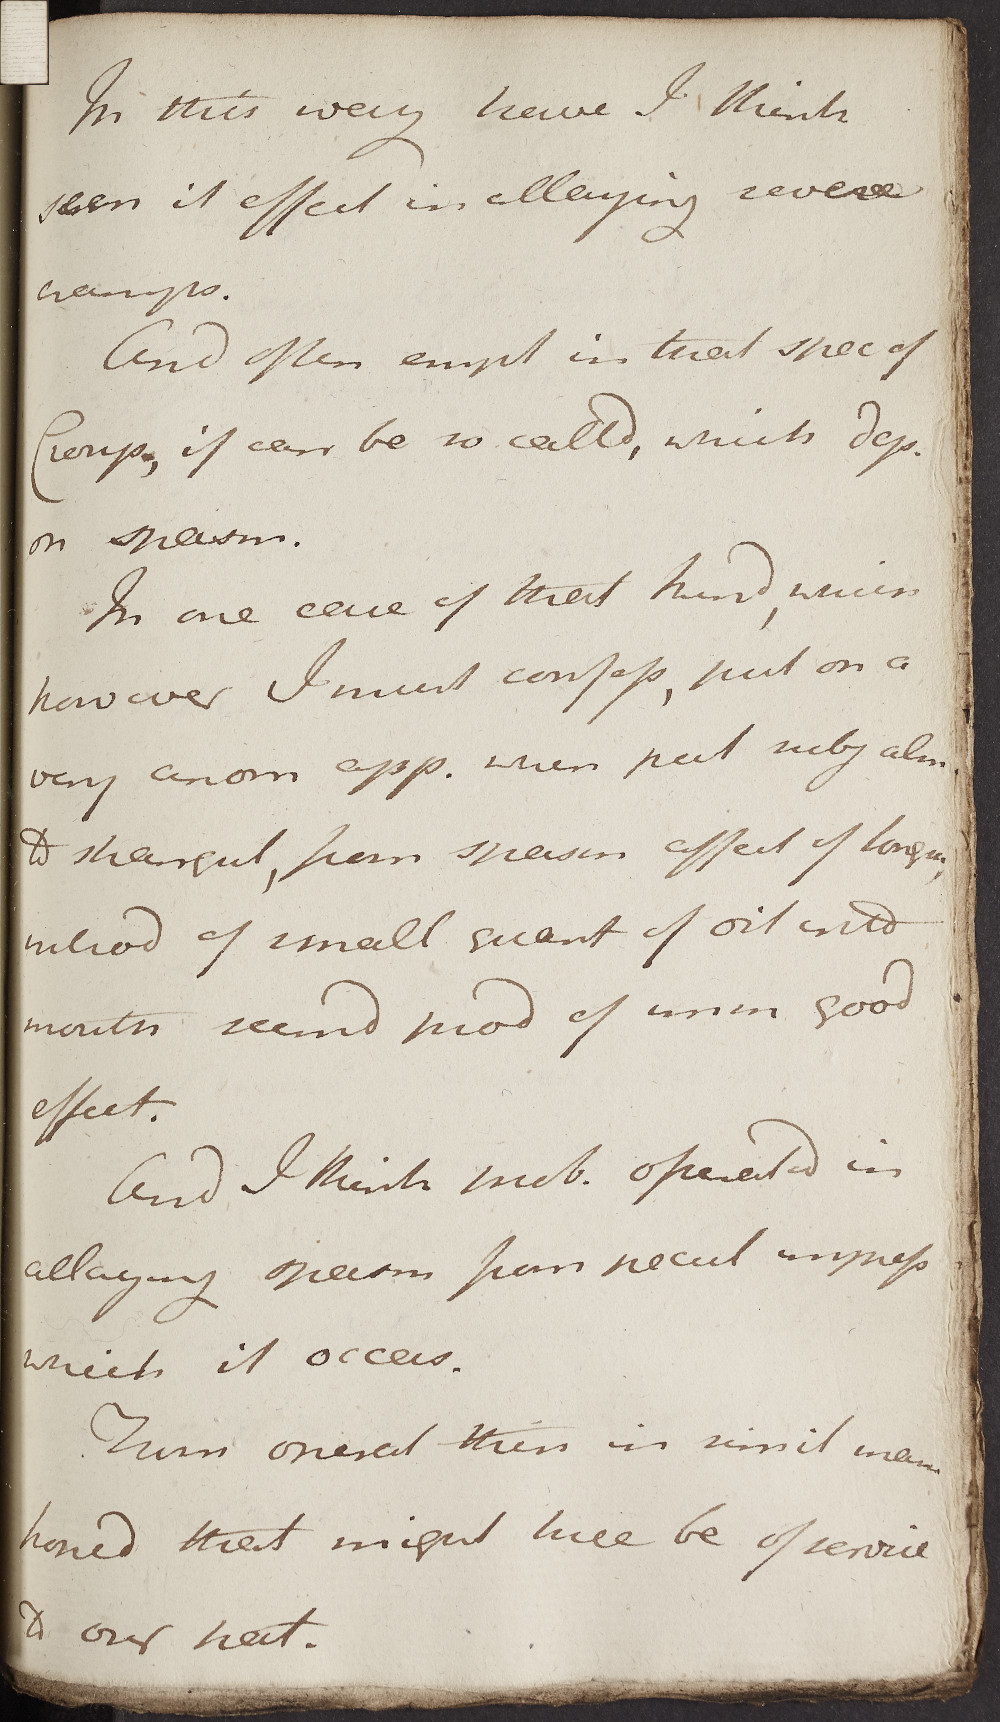 In this way have I think
seen it effect in allaying severe
cramps.
And often empl in that spec of
Croup, if can be so calld, which dep.
on spasm.
In one case of that kind, which
however I must confess, put on a
very anom app. when pat suby alm
to strangul, from spasm affect of longu,
introd of small quant of oil into
mouth seemd prod of imm good
effect.
And I think prob. operatd in
allaying spasm from pecul impress
which it occas.
From operat then in simil man
hoped that might here be of service
to our pat.